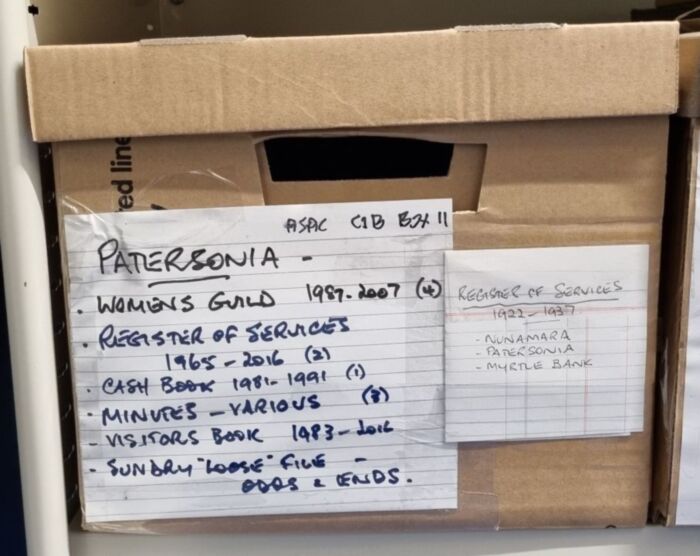 red line
ASAC C1B Box 11
PATERSONIA -
. WOMENS GUILD 1987-2007 (4)
. REGISTER OF SERVICES
1965 - 2016 (2)
- CASH BOOK 1981-1991 (1)
- MINUTES - VARIOUS (3)
- VISITORS BOOK 1983-2016
- SUNDRY "LOOSE" FILE -
ODDS & ENDS.
REGISTER OF SERVICES
1922-1937
- NUNAMARA
- PATERSONIA
- MYRTLE BANK